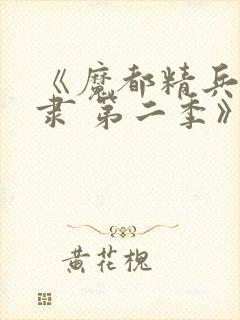 《魔都精兵
隶 第二季》
黄花槐